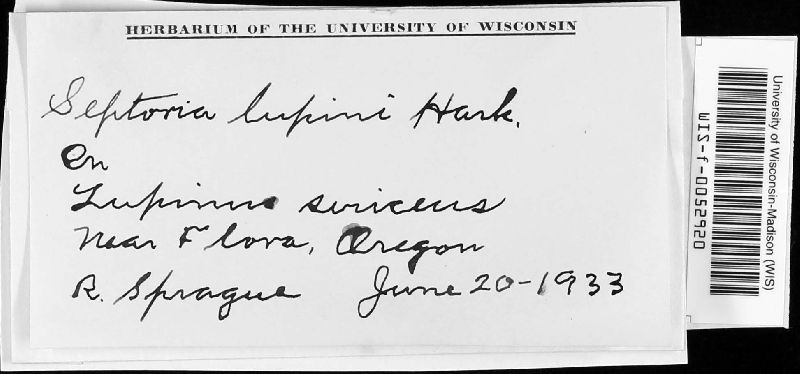 HERBARIUM OF THE UNIVERSITY OF WISCONSIN
Septoria lupini Hark.
On
Lupinus sericeus
Near Flora, Oregon
R. Sprague June 20-1933
University of Wisconsin-Madison (WIS)
WIS-f-0052920